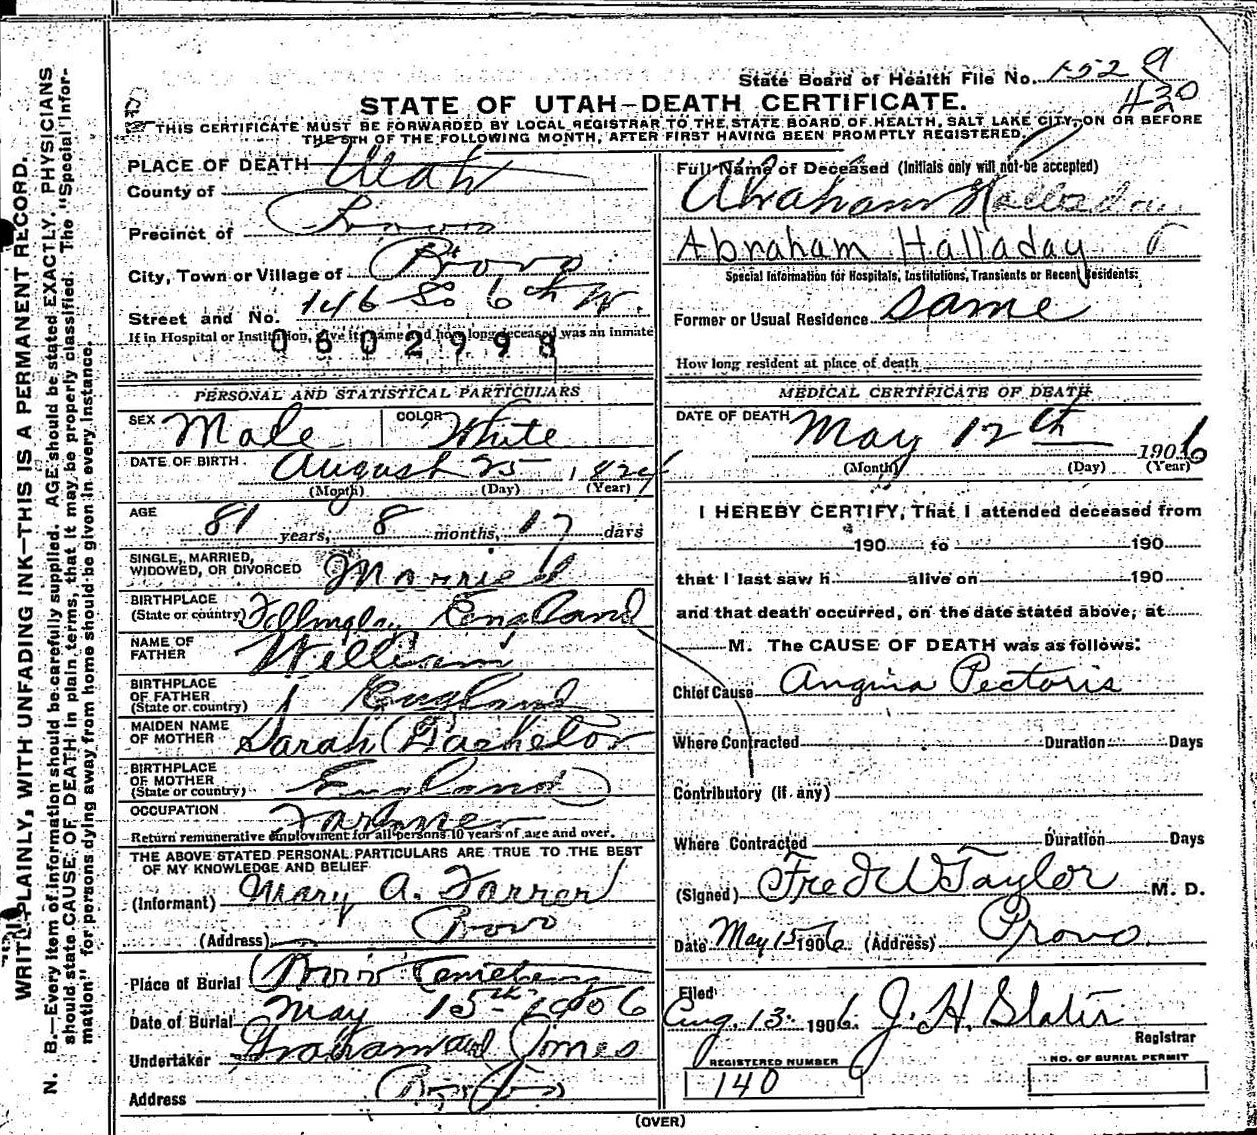 State Board of Health File No. 152 9
430
STATE OF UTAH—DEATH CERTIFICATE.
THIS CERTIFICATE MUST BE FORWARDED BY LOCAL REGISTRAR TO THE STATE BOARD OF HEALTH, SALT LAKE CITY, ON OR BEFORE
THE 5TH OF THE FOLLOWING MONTH, AFTER FIRST HAVING BEEN PROMPTLY REGISTERED.
PLACE OF DEATH
County of Utah
Precinct of Provo
City, Town or Village of Provo
Street and No. 146 So 6th W.
If in Hospital or Institution, give its name and how long deceased was an inmate
0602998
PERSONAL AND STATISTICAL PARTICULARS
SEX Male COLOR White
DATE OF BIRTH August 25 1824
(Month) (Day) (Year)
AGE 81 years, 8 months, 17 days
SINGLE, MARRIED,
WIDOWED, OR DIVORCED Married
BIRTHPLACE
(State or country) England
NAME OF
FATHER William
BIRTHPLACE
OF FATHER
(State or country) England
MAIDEN NAME
OF MOTHER Sarah Bachelor
BIRTHPLACE
OF MOTHER
(State or country) England
OCCUPATION Farmer
Return remunerative employment for all persons 10 years of age and over.
THE ABOVE STATED PERSONAL PARTICULARS ARE TRUE TO THE BEST
OF MY KNOWLEDGE AND BELIEF
(Informant) Mary A. Farrer
(Address) Provo
Place of Burial Provo Cemetery
Date of Burial May 15th 1906
Undertaker Graham and Jones
Address Provo
Full Name of Deceased (Initials only will not be accepted)
Abraham Halladay
Abraham Halladay
Special Information for Hospitals, Institutions, Transients or Recent Residents:
Former or Usual Residence same
How long resident at place of death
MEDICAL CERTIFICATE OF DEATH
DATE OF DEATH May 12th 1906
(Month) (Day) (Year)
I HEREBY CERTIFY, That I attended deceased from
190 to 190
that I last saw h alive on 190
and that death occurred, on the date stated above, at
M. The CAUSE OF DEATH was as follows:
Chief Cause Angina Pectoris
Where Contracted Duration Days
Contributory (if any)
Where Contracted Duration Days
(Signed) Fred W Taylor M. D.
Date May 15 1906 (Address) Provo
Filed
Aug. 13. 1906. J. H. Slater
Registrar
REGISTERED NUMBER
140
NO. OF BURIAL PERMIT
(OVER)
WRITE PLAINLY, WITH UNFADING INK—THIS IS A PERMANENT RECORD.
N. B.—Every item of information should be carefully supplied. AGE should be stated EXACTLY. PHYSICIANS
should state CAUSE OF DEATH in plain terms, that it may be properly classified. The "Special Infor-
mation" for persons dying away from home should be given in every instance.